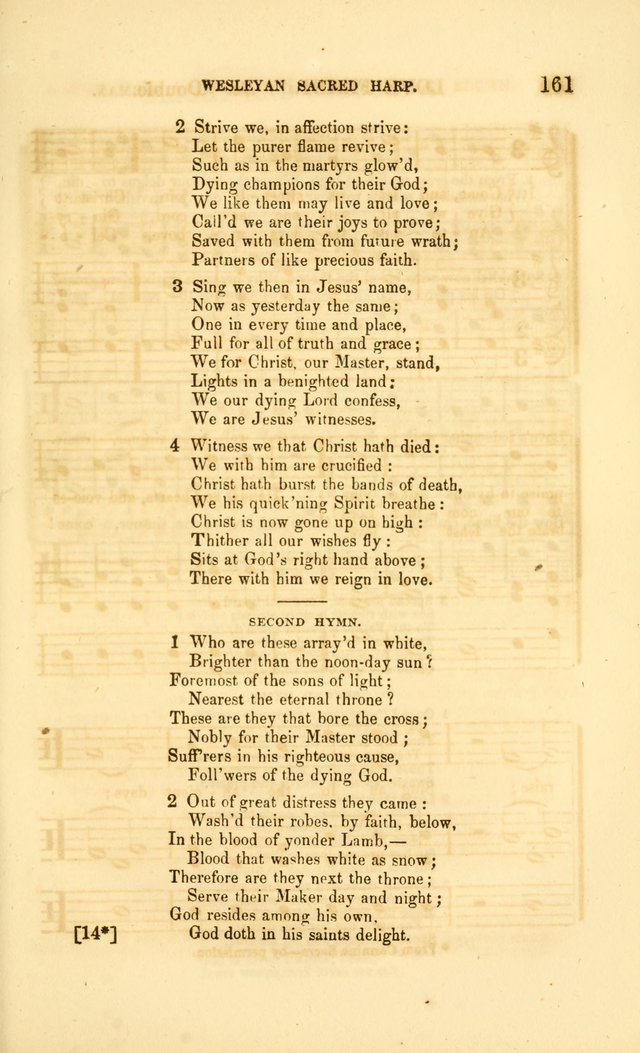 WESLEYAN SACRED HARP. 161
2 Strive we, in affection strive:
Let the purer flame revive;
Such as in the martyrs glow'd,
Dying champions for their God;
We like them may live and love;
Call'd we are their joys to prove;
Saved with them from future wrath;
Partners of like precious faith.
3 Sing we then in Jesus' name,
Now as yesterday the same;
One in every time and place,
Full for all of truth and grace;
We for Christ, our Master, stand,
Lights in a benighted land:
We our dying Lord confess,
We are Jesus' witnesses.
4 Witness we that Christ hath died:
We with him are crucified :
Christ hath burst the bands of death,
We his quick'ning Spirit breathe :
Christ is now gone up on high :
Thither all our wishes fly :
Sits at God's right hand above;
There with him we reign in love.
SECOND HYMN.
1 Who are these array'd in white,
Brighter than the noon-day sun?
Foremost of the sons of light;
Nearest the eternal throne?
These are they that bore the cross;
Nobly for their Master stood;
Suff'rers in his righteous cause,
Foll'wers of the dying God.
2 Out of great distress they came :
Wash'd their robes, by faith, below,
In the blood of yonder Lamb,—
Blood that washes white as snow;
Therefore are they next the throne;
Serve their Maker day and night;
God resides among his own,
[14*] God doth in his saints delight.